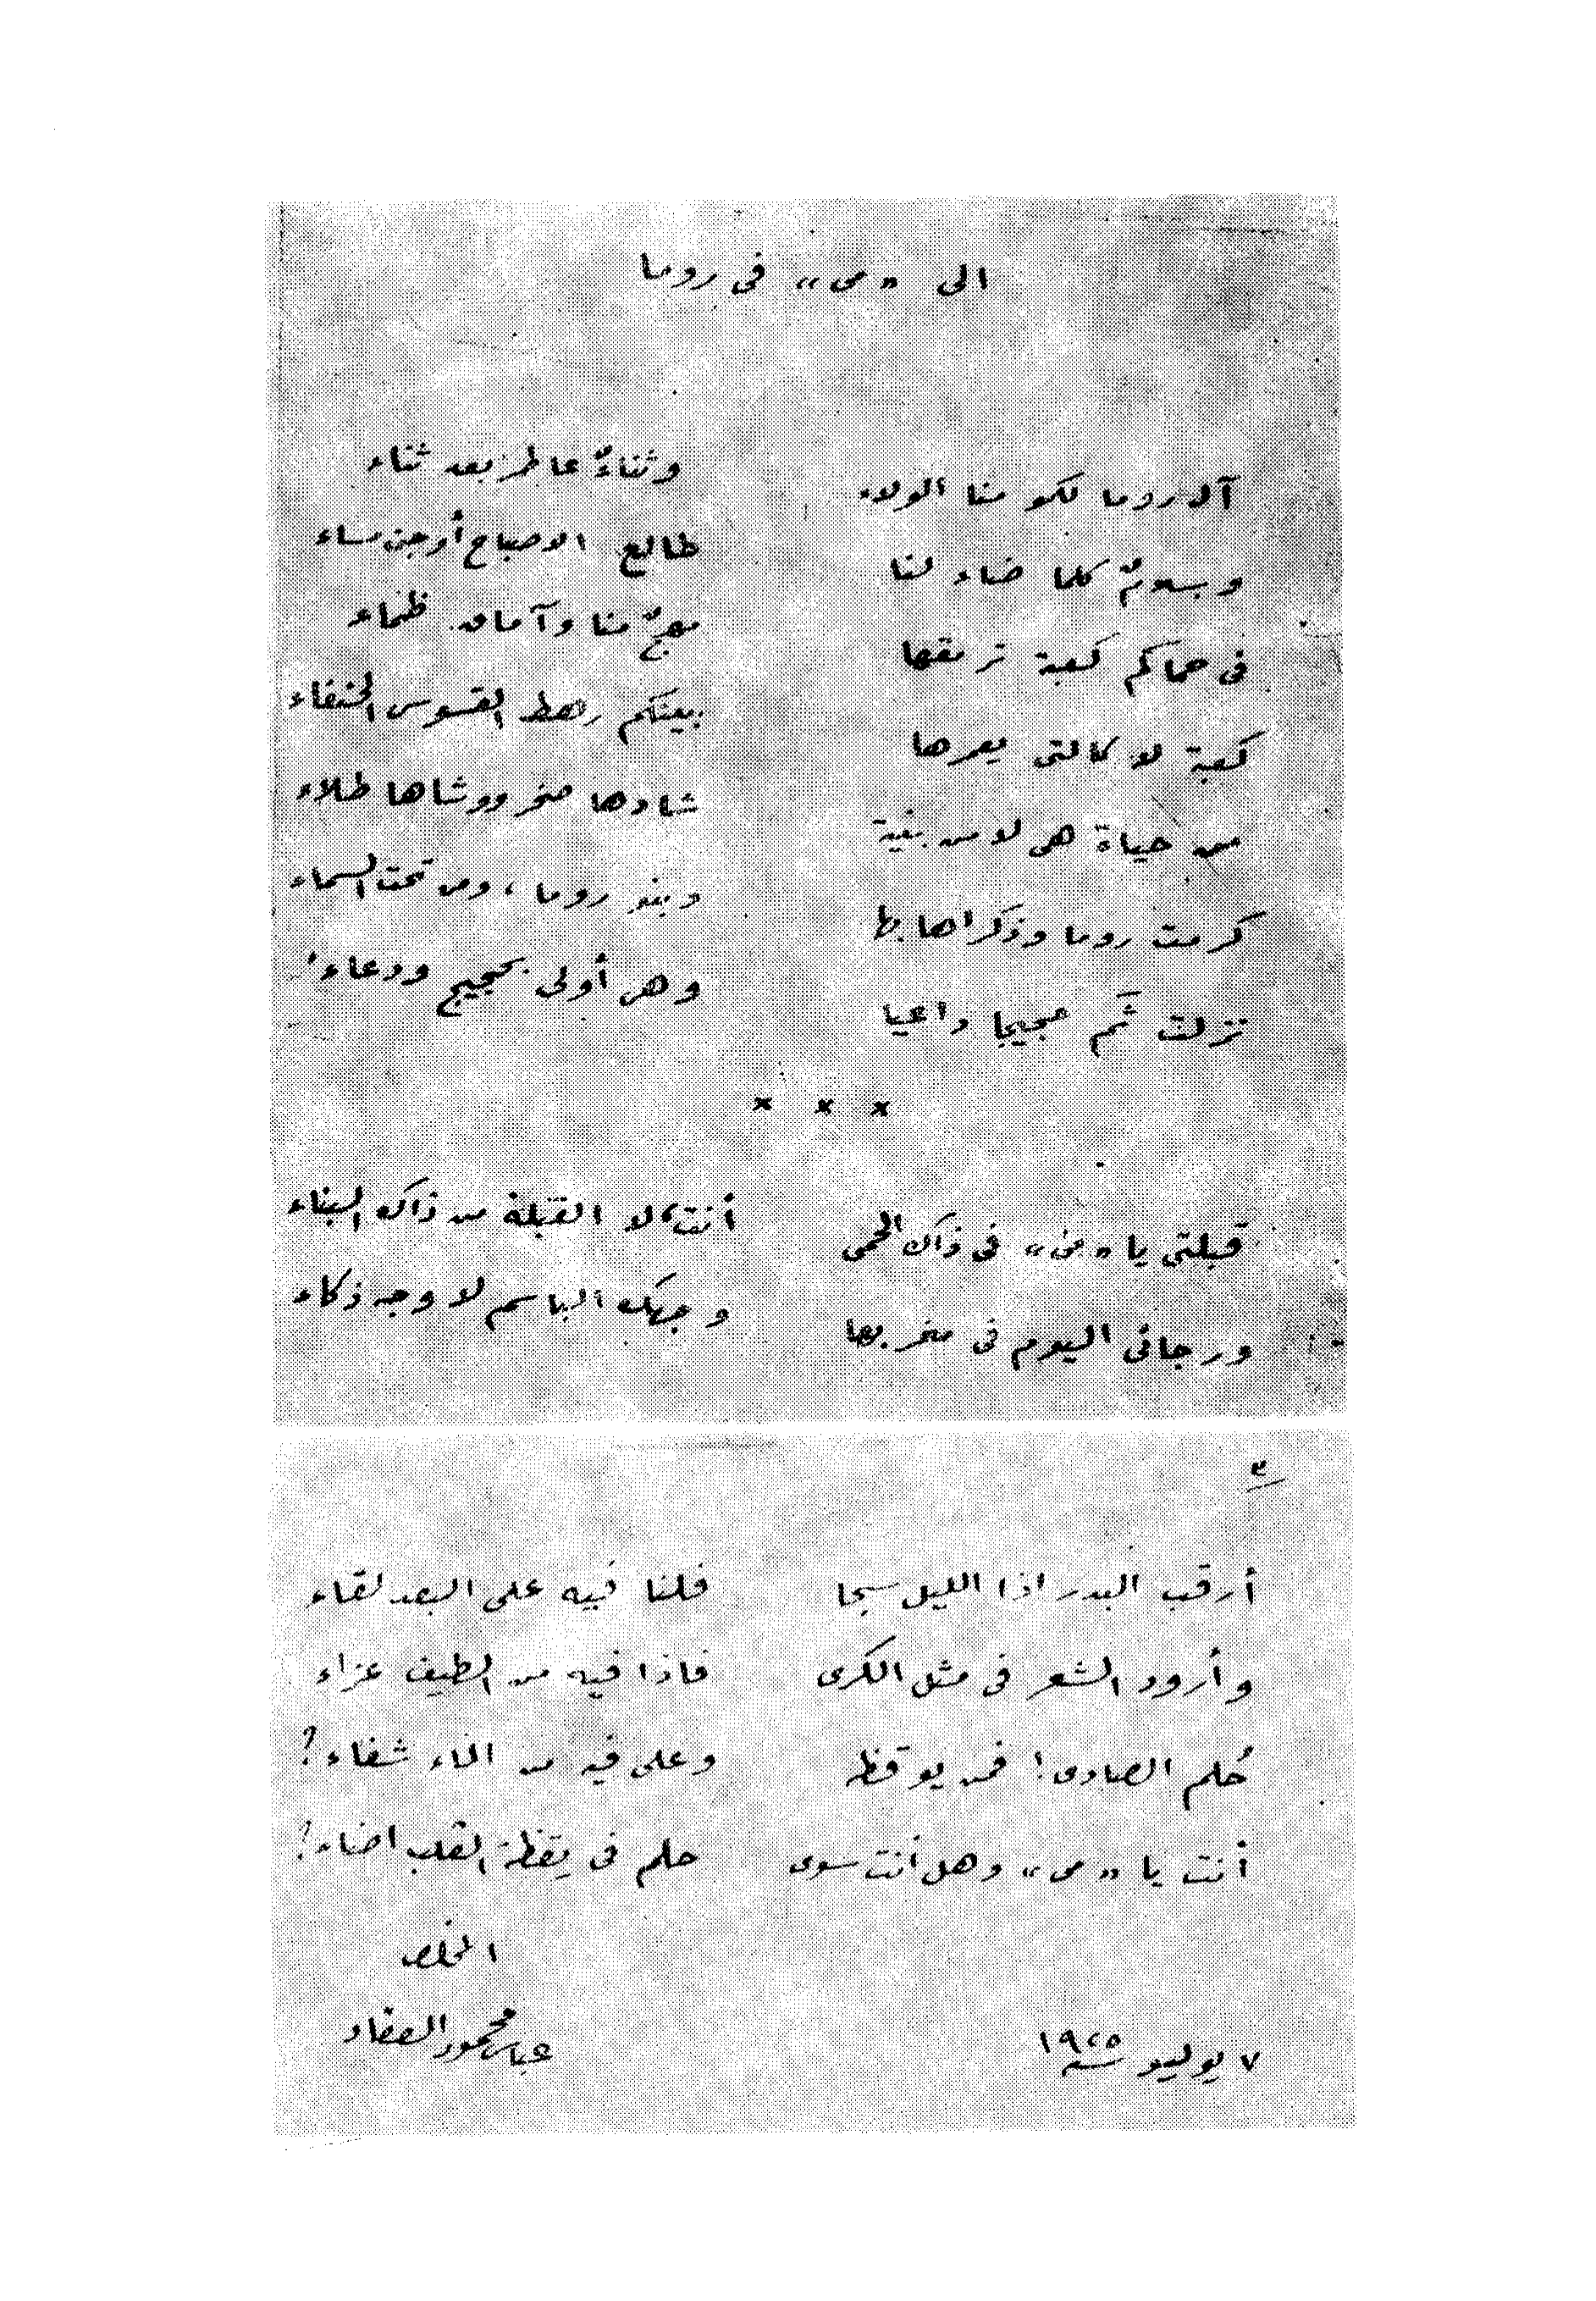 الى «مى» فى روما
آل روما لكمو منا الولاء وثناءٌ عاطر بعد ثناء
وسلامٌ كلما ضاء لنا طالع الاصباح أو جن مساء
فى حماكم كعبة ترمقها مهجٌ منا وآماق ظماء
كعبة لا كالتى يعمرها بينكم رهط القسوس الحنفاء
من حياة هى لا من بنية شادها صخر ووشاها طلاء
كرمت روما وذكراها بها وبنو روما، ومن تحت السماء
نزلت ثَم حجيجا داعيا وهى أولى بحجيج ودعاء
× × ×
قبلتى يا «مى» فى ذاك الحمى أنت، لا القبلة من ذاك البناء
ورجائى اليوم فى مغربها وجهك الباسم لا وجه ذكاء
٢
أرقب البدر اذا الليل سجا فلنا فيه على البعد لقاء
وأرود الشعر فى مثل الكرى فاذا فيه من الطيف عزاء
حُلم الصادى! فمن يوقظه وعلى فيه من الماء شفاء؟
أنت يا «مى» وهل أنت سوى حلم فى يقظة القلب اضاء؟
المخلص
عباس محمود العقاد
٧ يوليو سنة ١٩٢٥